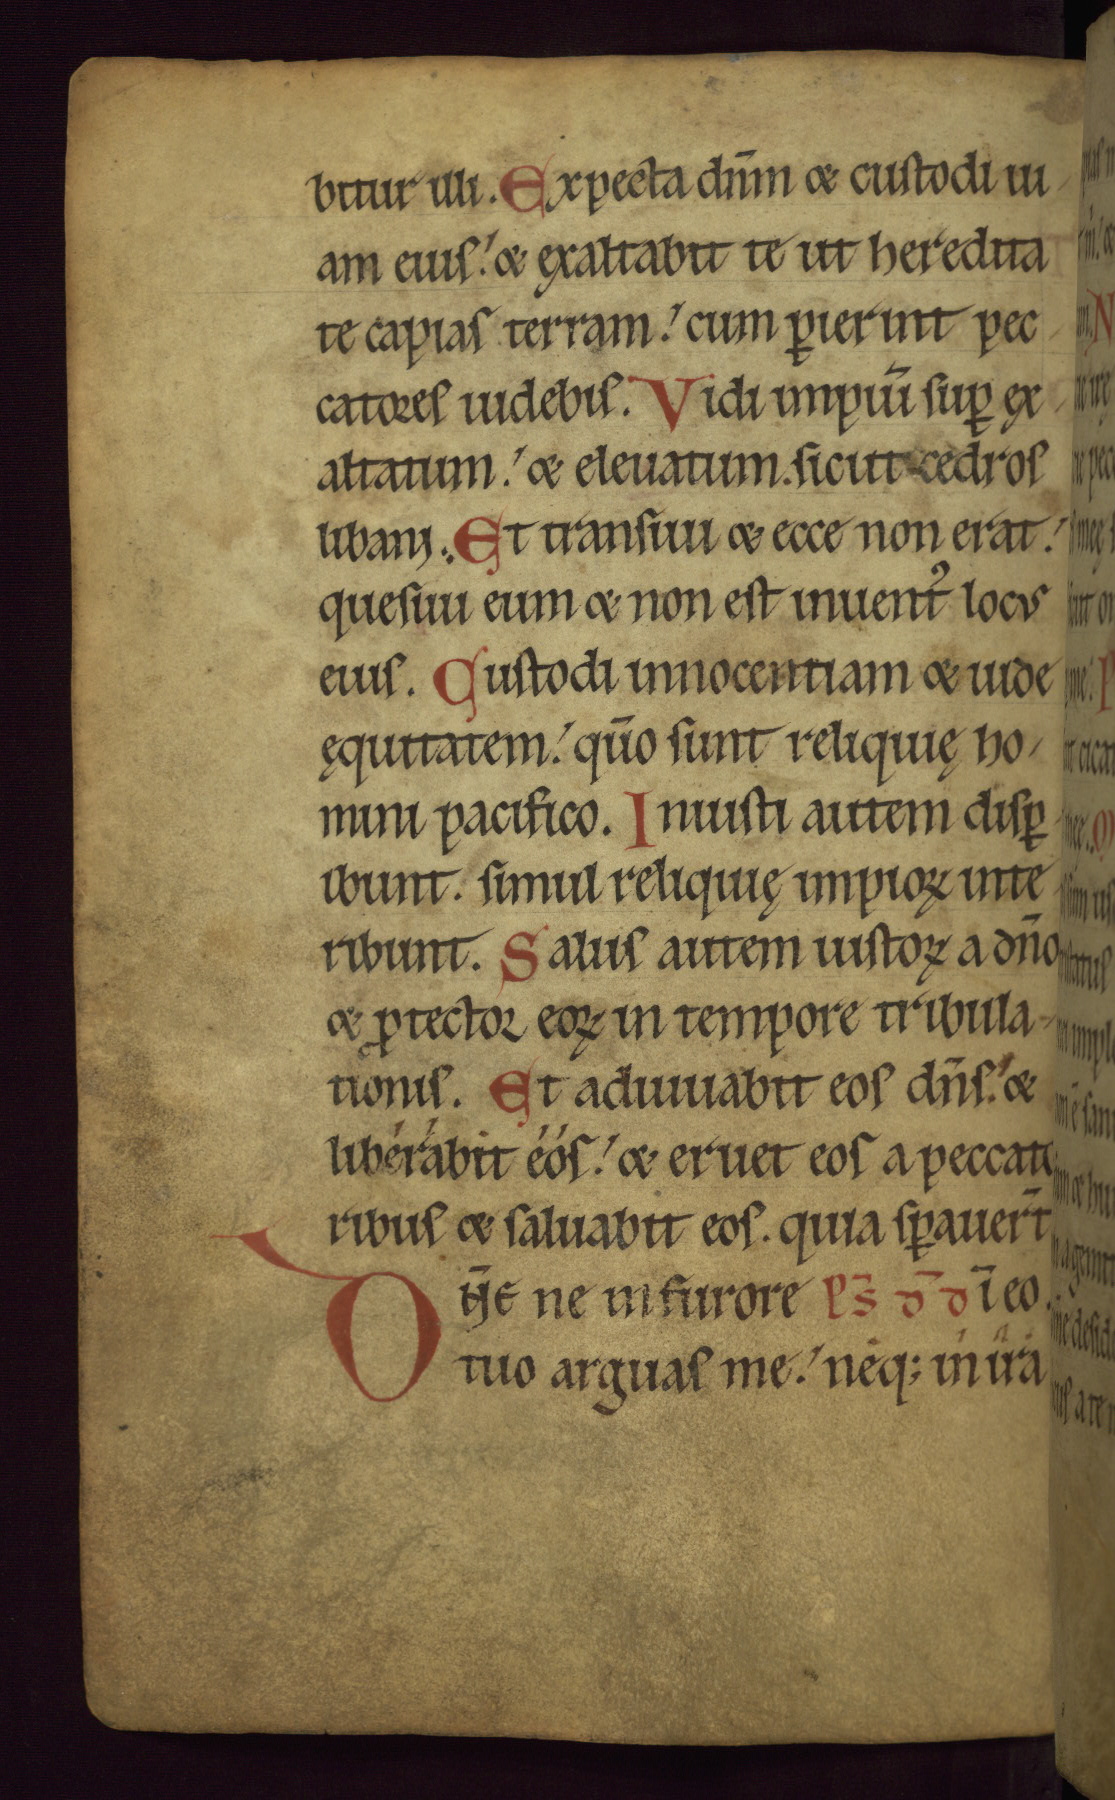 bitur illi. Expecta dn̄m & custodi ui-
am eius:́ & exaltabit te ut heredita
te capias terram:́ cum p̄ierint pec-
catores uidebis. Vidi impiū sup̄ ex-
altatum:́ & eleuatum. sicut cedros
libani. Et transiui & ecce non erat:́
quesiui eum & non est inuent᾽ locus
eius. Custodi innocentiam & uide
ęquitatem:́ qm̄o sunt reliquię ho-
mini pacifico. Iniusti autem disp̄
ibunt. simul reliquię impioꝝ inte
ribunt. Salus autem iustoꝝ a dn̄o
& ꝓtector eoꝝ in tempore tribula-
tionis. Et adiuuabit eos dn̄s:́ &
liberabit eos:́ & eruet eos a peccato
ribus & saluabit eos. quia sp̄auer̄t
Dn̄e ne in furore ps̄ d̄d̄ ī eo.
tuo arguas me:́ neq; in ira